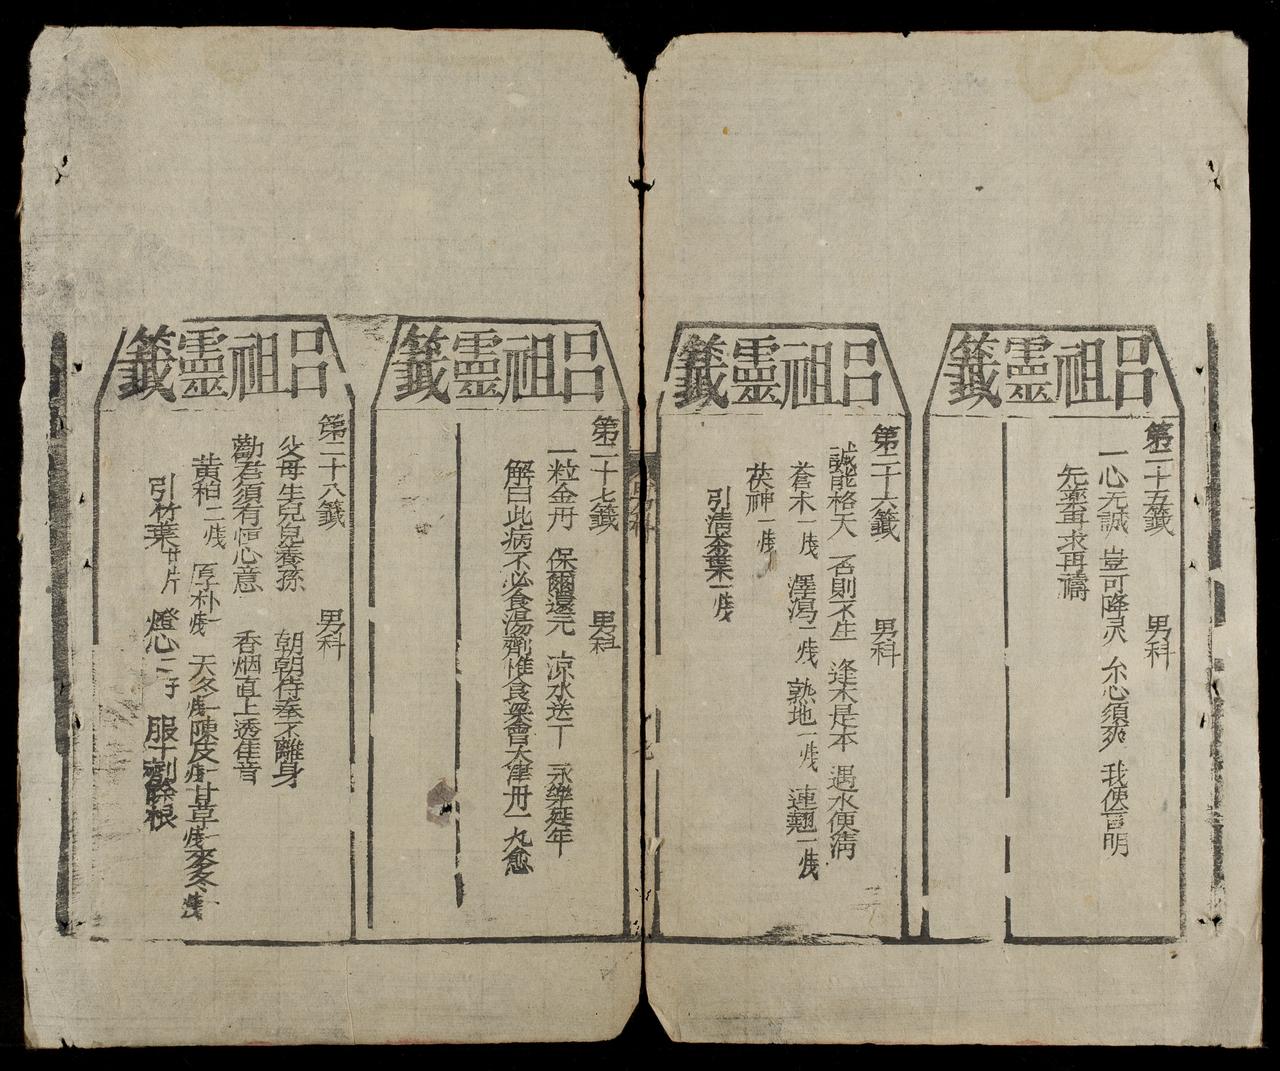 呂祖靈籤
第二十五籤　男科
一心无誠　豈可降灵　尒心須爽　我使言明
先藥再求再禱
呂祖靈籤
第二十六籤　男科
誠能格天　否則不生　逢木是本　遇水便清
蒼木一戋　澤瀉一戋　熟地一戋　連翹一戋
茯神一戋
引清茶葉一戋
呂祖靈籤
第二十七籤　男科
一粒金丹　保爾還元　凉水送下　永樂延年
解曰此病不必食湯劑惟食眾會天津丹一丸愈
呂祖靈籤
第二十八籤　男科
父母生兒兒養孫　朝朝侍奉不離身
勸君須有恒心意　香烟直上透佳音
黄柏二戋　厚朴一戋　天冬一戋　陳皮一戋　甘草一戋　麥冬一戋
引竹葉廿片　燈心二寸　服十劑除根